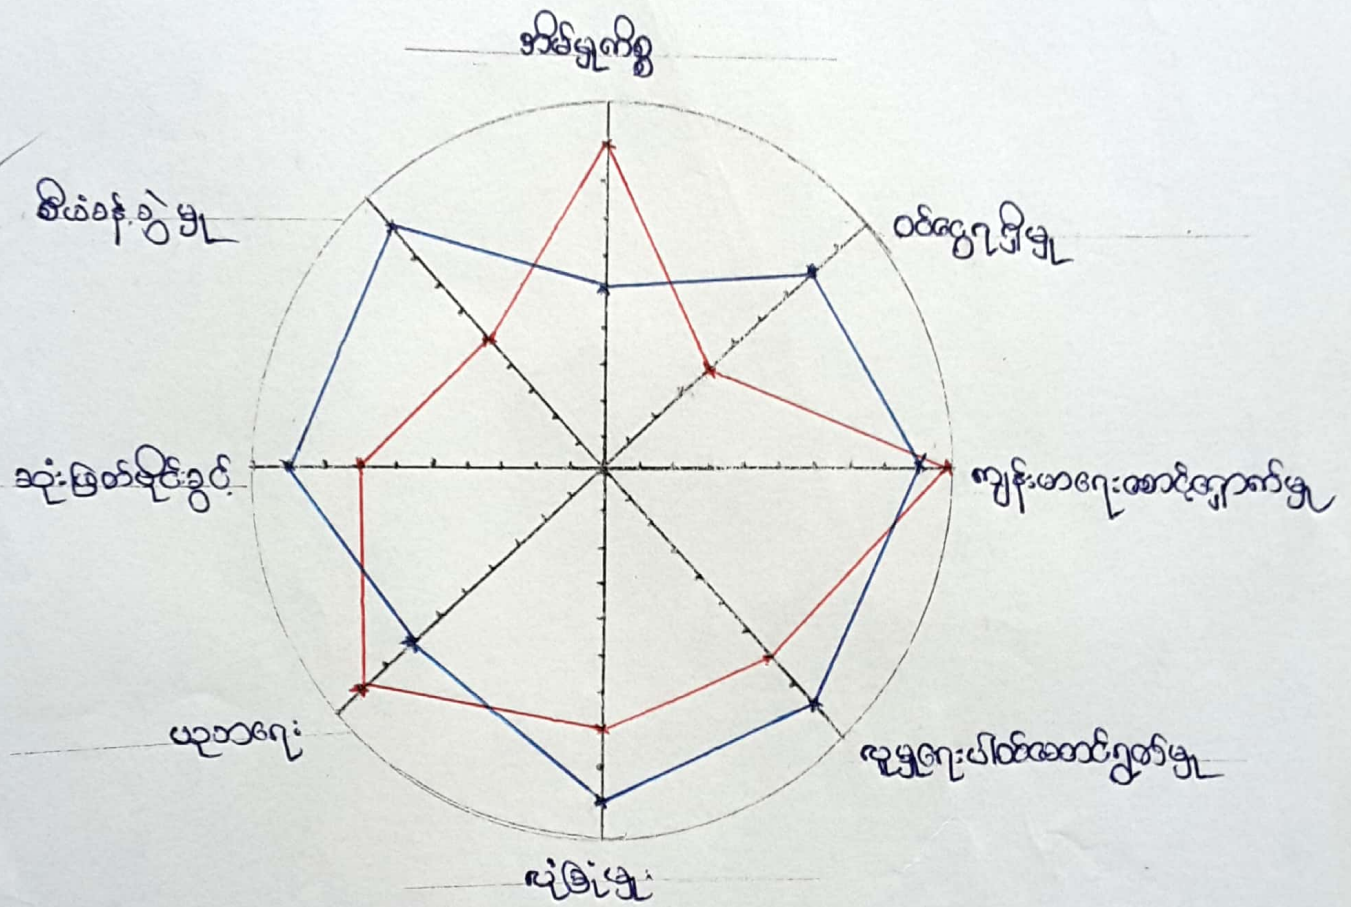 အိမ်မှုကိစ္စ
ဝင်ငွေရရှိမှု
ကျန်းမာရေးစောင့်ရှောက်မှု
လူမှုရေးပါဝင်ဆောင်ရွတ်မှု
လုံခြုံမှု
ပညာရေး
ဆုံးဖြတ်ပိုင်ခွင့်
စီမံခန့်ခွဲမှု